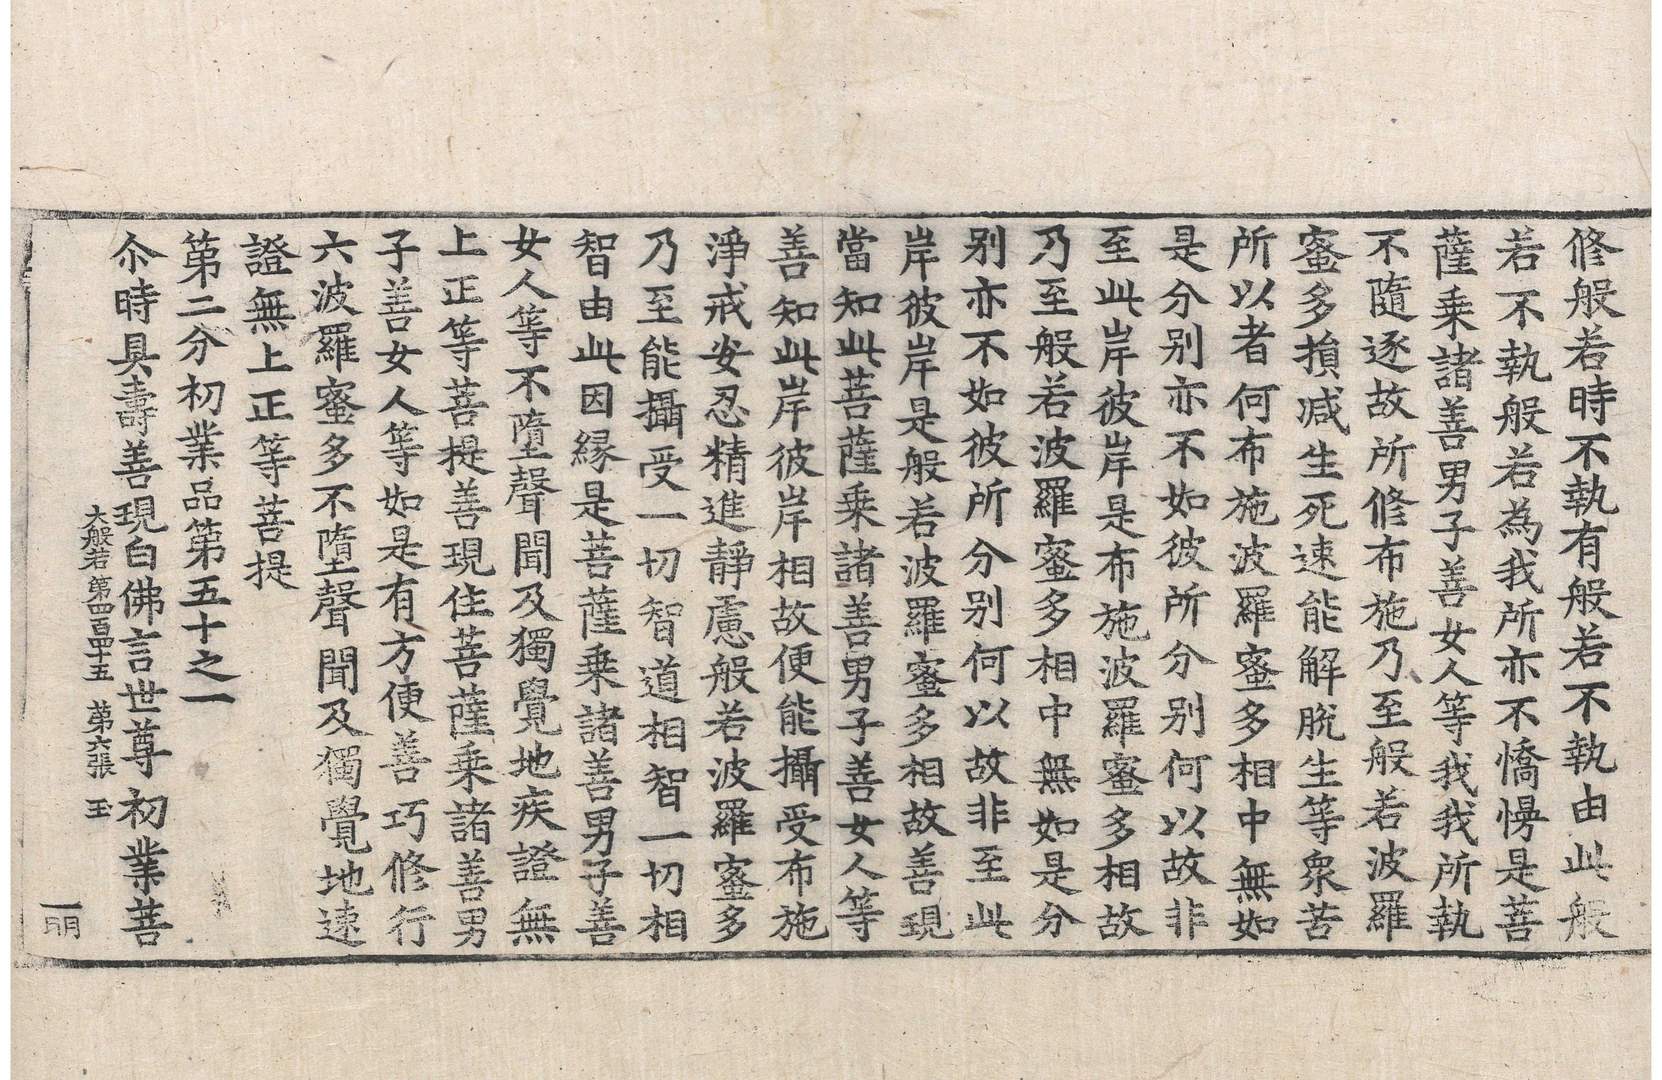 修般若時不執有般若不執由此般
若不執般若為我所亦不憍慢是菩
薩乗諸善男子善女人等我我所執
不隨逐故所修布施乃至般若波羅
蜜多損減生死速能解脫生等衆苦
所以者何布施波羅蜜多相中無如
是分别亦不如彼所分别何以故非
至此岸彼岸是布施波羅蜜多相故
乃至般若波羅蜜多相中無如是分
别亦不如彼所分别何以故非至此
岸彼岸是般若波羅蜜多相故善現
當知此菩薩乗諸善男子善女人等
善知此岸彼岸相故便能攝受布施
淨戒安忍精進靜慮般若波羅蜜多
乃至能攝受一切智道相智一切相
智由此因縁是菩薩乗諸善男子善
女人等不墮聲聞及獨覺地疾證無
上正等菩提善現住菩薩乗諸善男
子善女人等如是有方便善巧修行
六波羅蜜多不墮聲聞及獨覺地速
證無上正等菩提
第二分初業品第五十之一
尒時具壽善現白佛言世尊初業菩
大般若第四百四十五 第六張 玉
一明